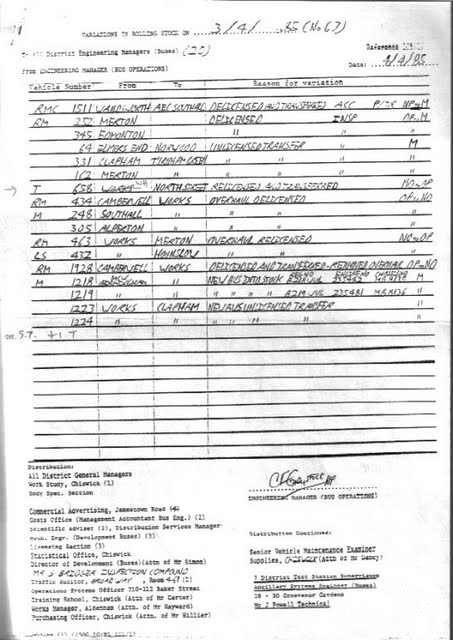 VARIATIONS IN ROLLING STOCK ON 3/4/85 (No 67)
To All District Engineering Managers (Buses) (20)
Reference
From ENGINEERING MANAGER (BUS OPERATIONS)
Date: 4/4/85
Vehicle Number From To Reason for variation
RMC 1511 WANDSWORTH DELICENSED AND TRANSFERRED ACC M
RM 252 MERTON DELICENSED INSP
345 EDMONTON " "
64 ELMERS END NORWOOD UNLICENSED TRANSFER M
331 CLAPHAM " "
162 MERTON " " "
T 658 WORKS NORTH STREET RELICENSED AND TRANSFERRED NO-OP
RM 434 CAMBERWELL WORKS OVERHAUL DELICENSED OP-NO
M 248 SOUTHALL " " "
305 ALPERTON " " "
RM 463 WORKS MERTON OVERHAUL RELICENSED NO-OP
LS 432 " HOUNSLOW " " "
RM 1928 CAMBERWELL WORKS DELICENSED AND TRANSFERRED OVERHAUL OP-NO
M 1218 " NEW BUS INTO STOCK M
1219 " " " " " "
1223 WORKS CLAPHAM NEW BUS UNLICENSED TRANSFER "
1224 " " " " " "
5.7. +1T
Distribution:
All District General Managers
Work Study, Chiswick (1)
Body Spec. Section
ENGINEERING MANAGER (BUS OPERATIONS)
Commercial Advertising, Jamestown Road
Costs Office (Management Accountant Bus Eng.) (2)
Scientific Adviser (2), Distribution Services Manager
Mech. Engr. (Development Buses) (3)
Licensing Section (3)
Statistical Office, Chiswick
Director of Development (Buses)(Attn of Mr Simon)
MR S BRIDGER INSPECTION COMPOUND
Traffic Auditor, BROADWAY, Room
Operations Systems Officer 710-711 Baker Street
Training School, Chiswick (Attn of Mr Carter)
Works Manager, Aldenham (Attn of Mr Hayward)
Purchasing Officer, Chiswick (Attn of Mr Hillier)
Distribution Continued:
Senior Vehicle Maintenance Examiner
Supplies, CHISWICK (Attn of Mr Dancy)
7 District Test Station Supervisors
Ancillary Systems Engineer (Buses)
28 - 30 Grosvenor Gardens
Mr J Powell Technical